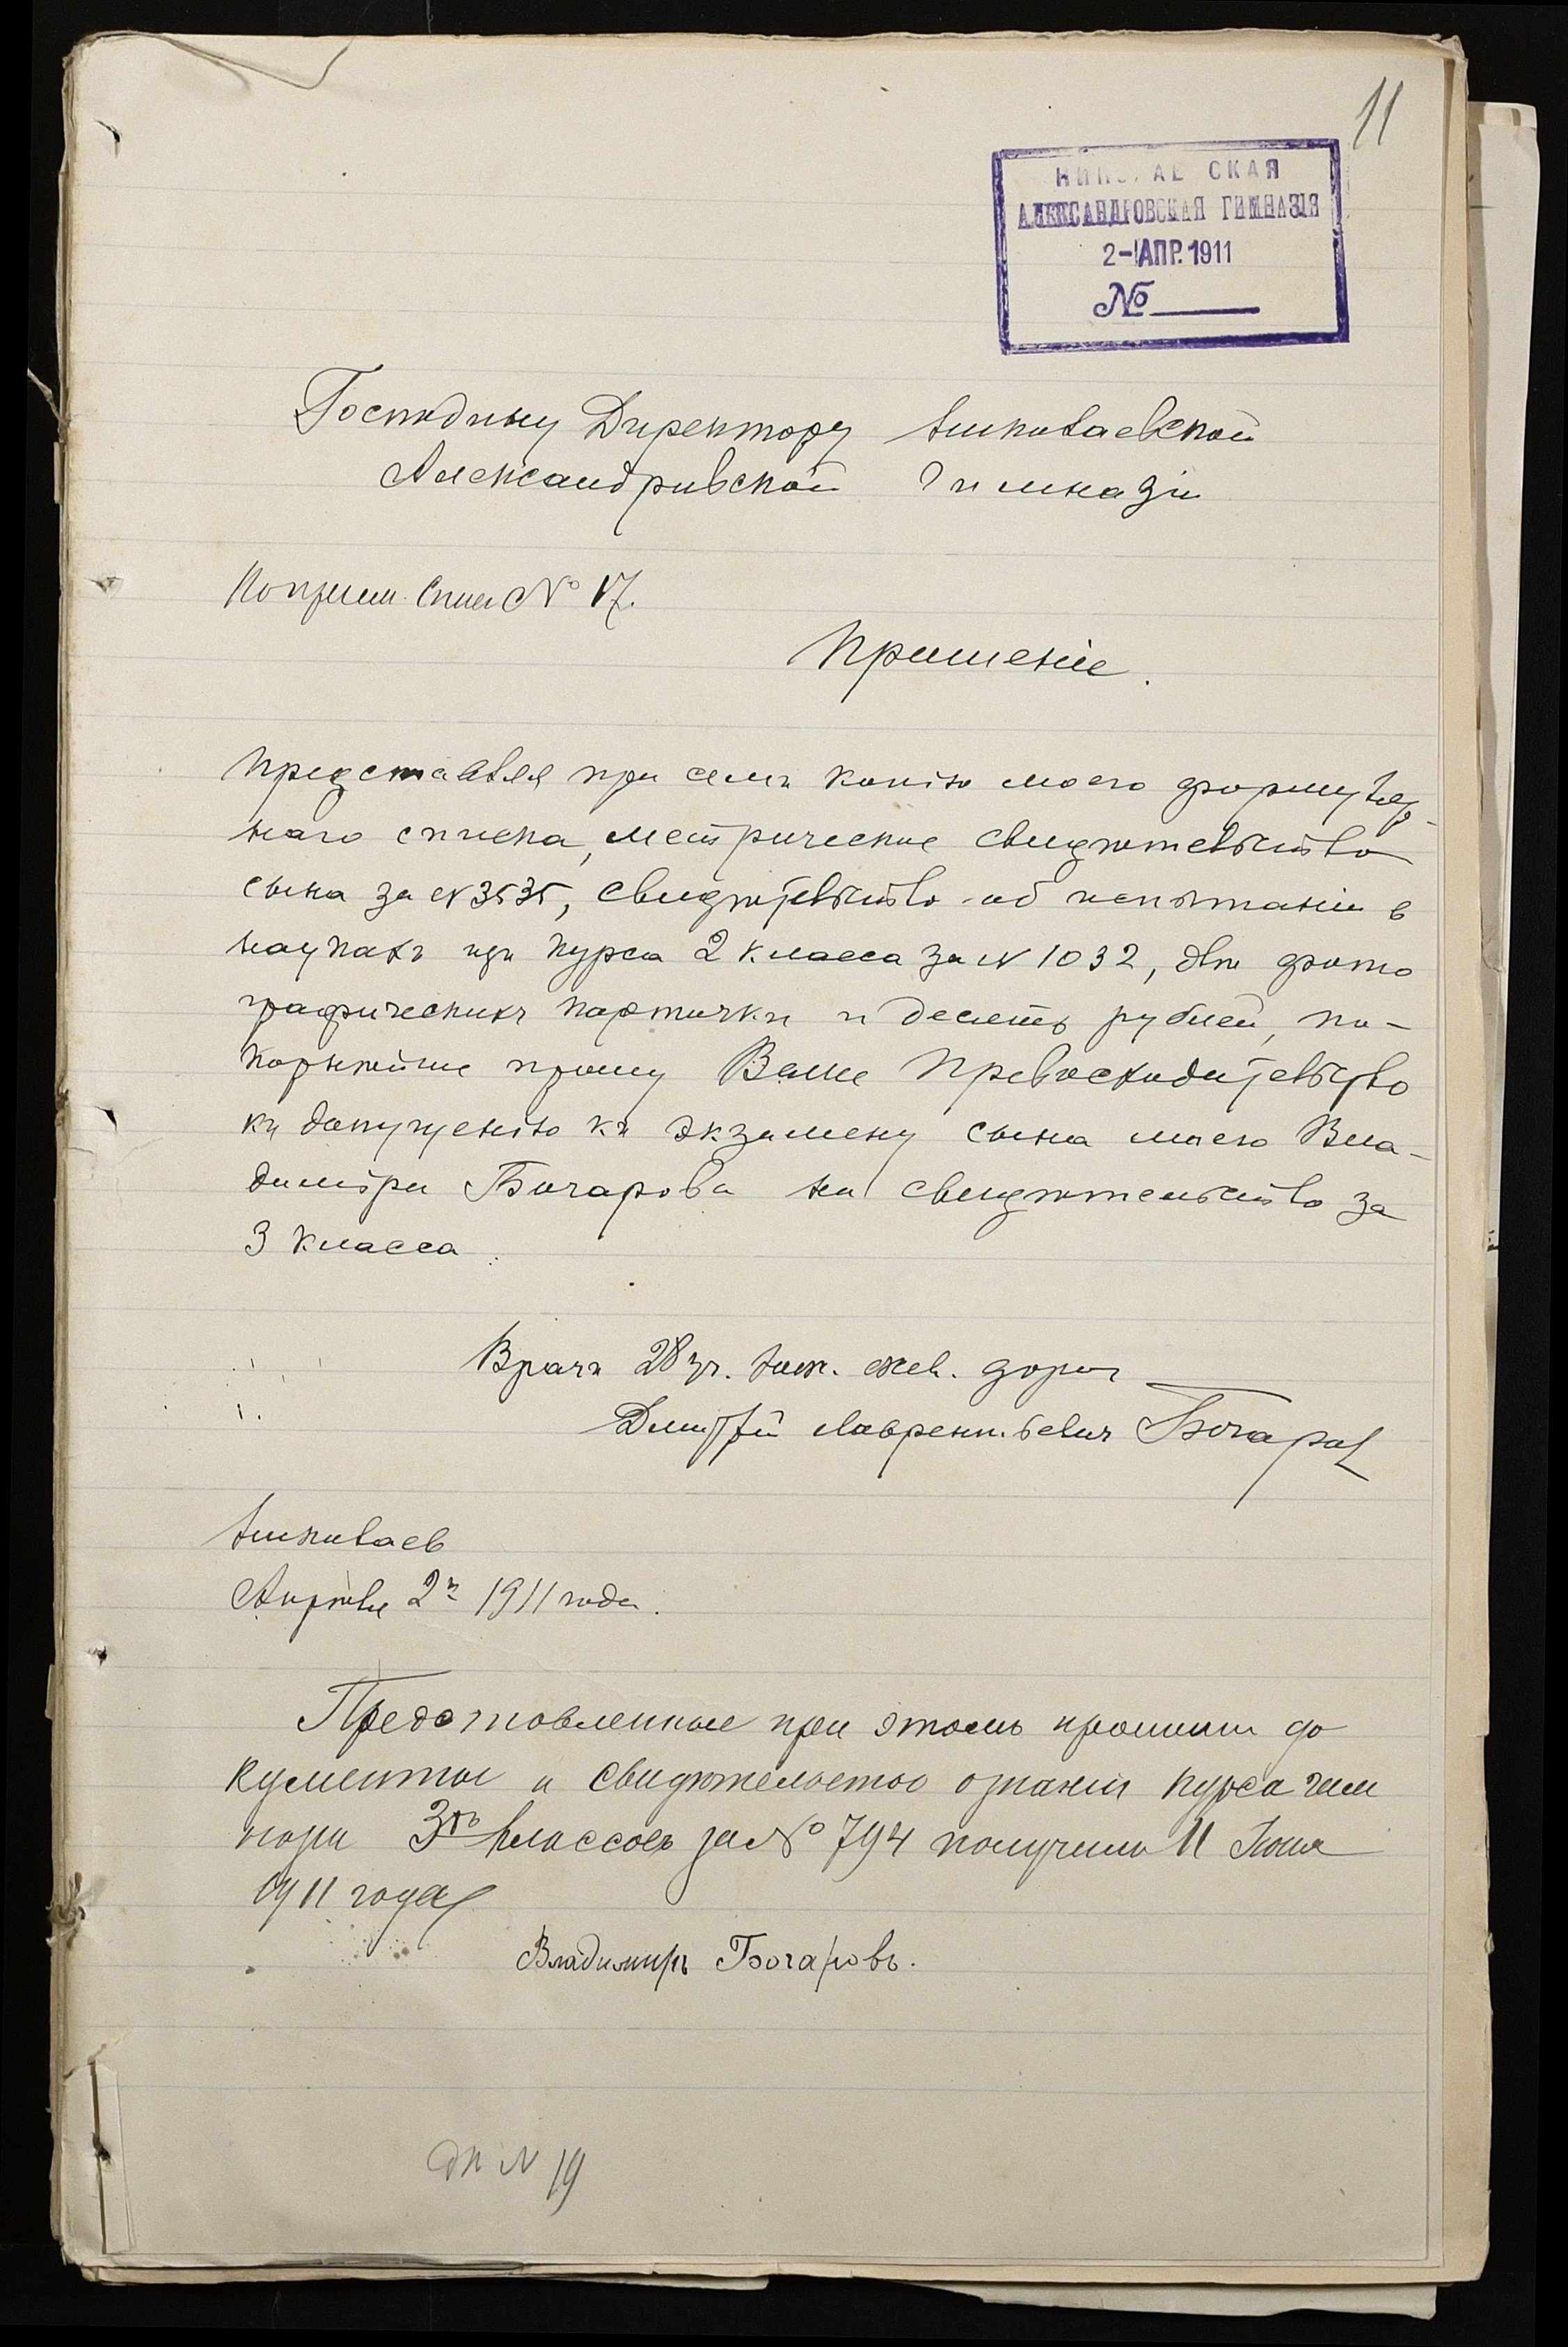 11
НИКОЛАЕВСКАЯ
АЛЕКСАНДРОВСКАЯ ГИМНАЗІЯ
2-АПР.1911
№
Господину Директору Николаевской
Александровской Гимназіи
№ 17.
Прошеніе.
Представляя при семъ копію моего формуляр-
наго списка, метрическое свидѣтельство
сына за N 3535, свидѣтельство об испытаніи в
наукахъ изъ курса 2 класса за N 1032, двѣ фото
графическихъ карточки и десять рублей, по-
корнѣйше прошу Ваше Превосходительство
къ допущенію къ экзамену сына моего Вла-
диміра Бочарова на свидѣтельство за
3 класса.
Врачъ 28 уч. Юж. жел. дорог
Дмитрій Лаврентьевич Бочаров
Николаев
Апрѣля 2го 1911 года.
Предоставленные при этомъ прошеніи до
кументы и свидѣтельство о знаніи курса гим
назіи 3хъ классовъ за № 794 получилъ 11 Іюня
1911 года
Владимиръ Бочаровъ.
N 19